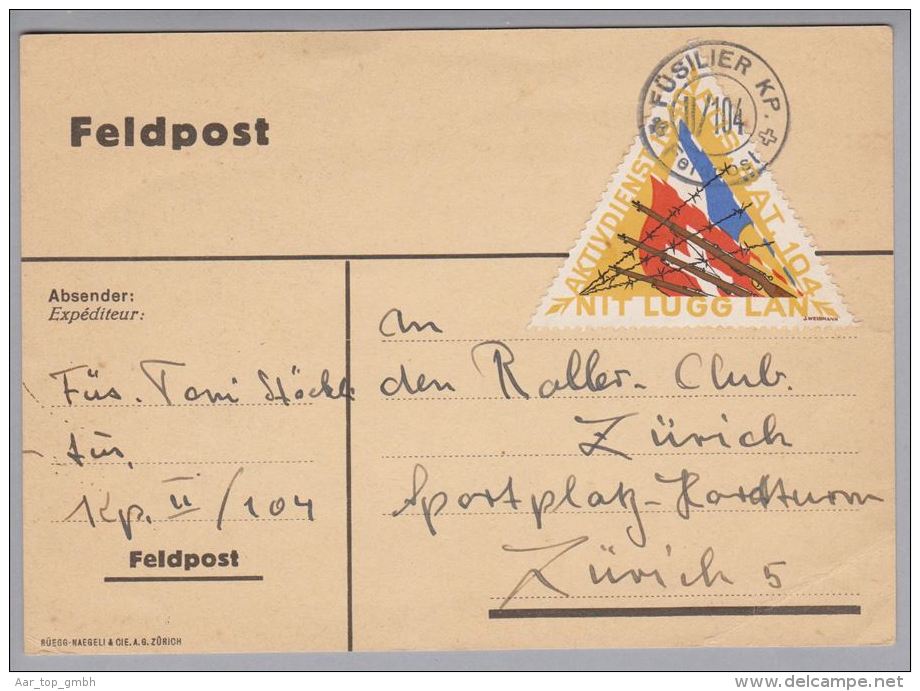 Feldpost
FÜSILIER KP.
II/104
Feldpost
AKTIVDIENST
BAT. 104
NIT LUGG LAN
J. WEIDMANN
Absender:
Expéditeur:
Füs. Toni Stöckli
Füs.
Kp. II / 104
Feldpost
an
den Roller-Club.
Zürich
Sportplatz-Hardturm
Zürich 5
RÜEGG-NAEGELI & CIE. A.G. ZÜRICH
Aar_top_gmbh
www.delcampe.net